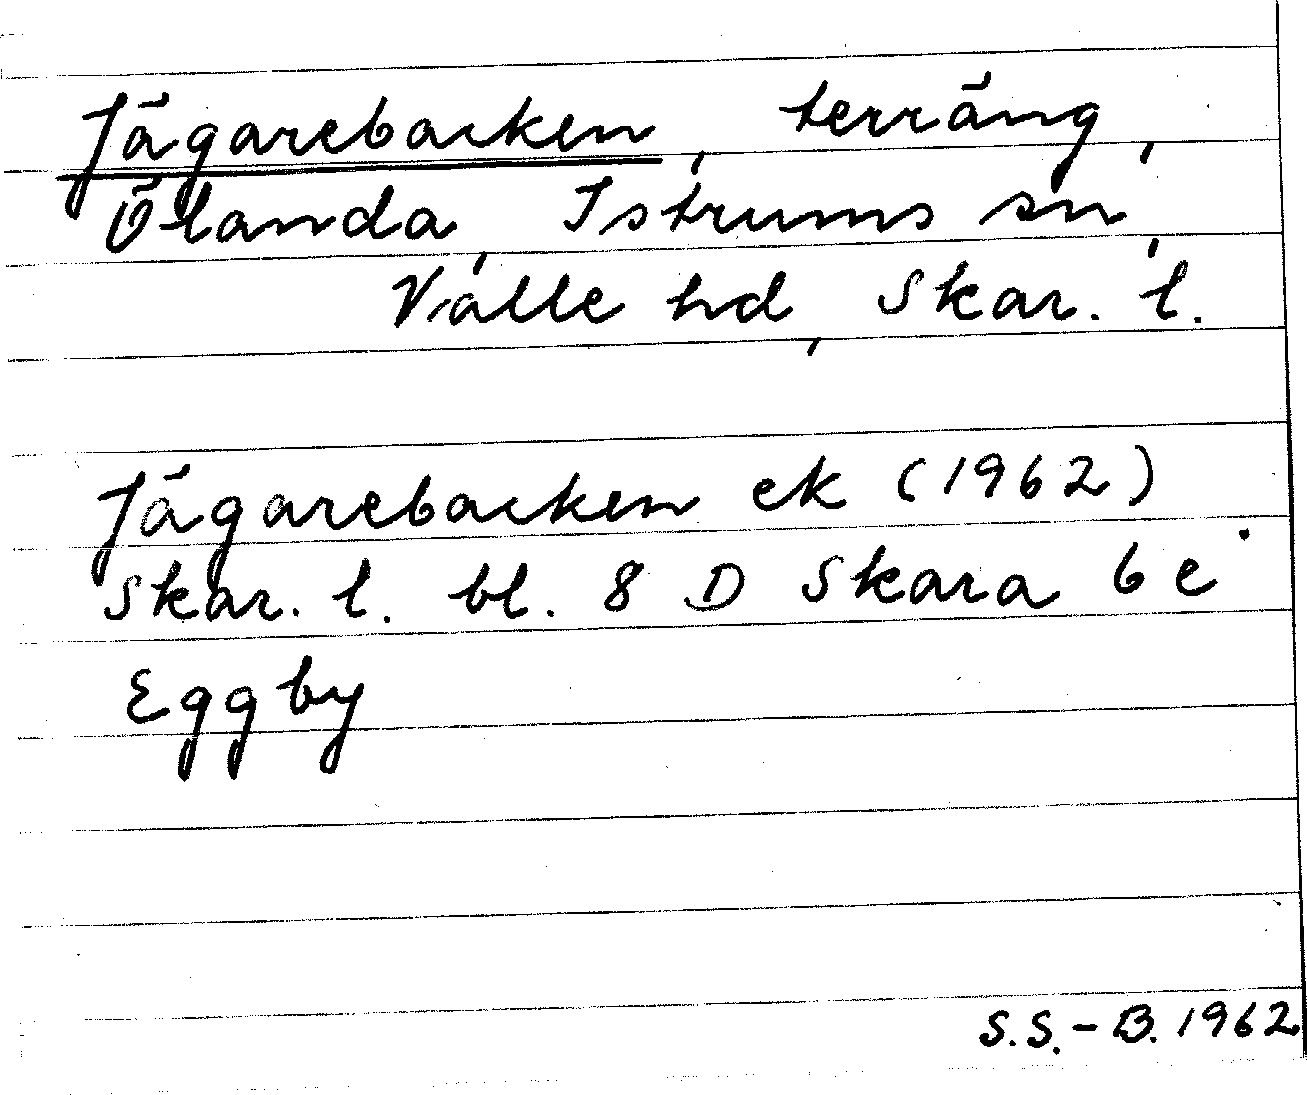 Jägarebacken, terräng,
Ölanda, Istrums sn,
Valle hd, Skar. l.
Jägarebacken ek (1962)
Skar. l. bl. 8 D Skara 6 e
Eggby
S.S.-B. 1962